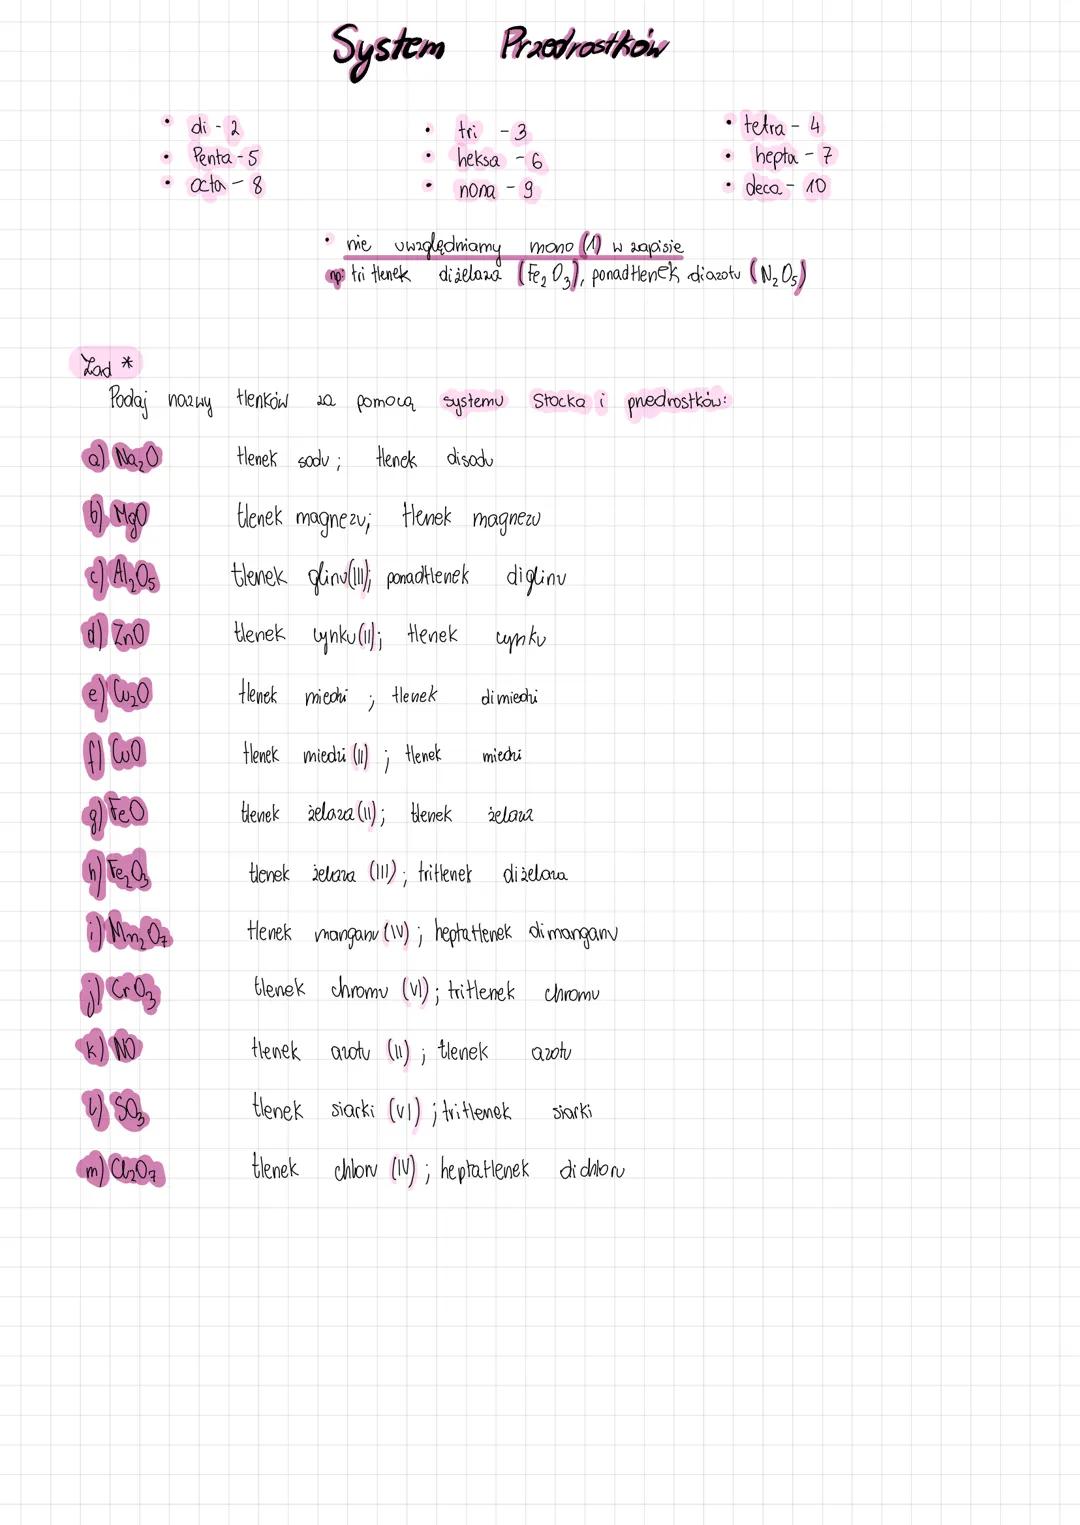 System Przedrostków
• di - 2 • tri - 3 • tetra - 4
• Penta - 5 • heksa - 6 • hepta - 7
• octa - 8 • nona - 9 • deca - 10
• nie uwzględniamy mono (1) w zapisie
np: tri tlenek diżelaza (Fe₂O₃), ponadtlenek diazotu (N₂O₅)
Zad *
Podaj nazwy tlenków za pomocą systemu Stocka i przedrostków:
a) Na₂O tlenek sodu; tlenek disodu
b) MgO tlenek magnezu; tlenek magnezu
c) Al₂O₅ tlenek glinu(III); ponadtlenek diglinu
d) ZnO tlenek cynku(II); tlenek cynku
e) Cu₂O tlenek miedzi ; tlenek dimiedzi
f) CuO tlenek miedzi (II) ; tlenek miedzi
g) FeO tlenek żelaza(II); tlenek żelaza
h) Fe₂O₃ tlenek żelaza (III) ; tritlenek diżelaza
i) Mn₂O₇ tlenek manganu (IV) ; heptatlenek dimanganu
j) CrO₃ tlenek chromu (VI) ; tritlenek chromu
k) NO tlenek azotu (II) ; tlenek azotu
l) SO₃ tlenek siarki (VI) ; tritlenek siarki
m) Cl₂O₇ tlenek chloru (IV) ; heptatlenek dichloru